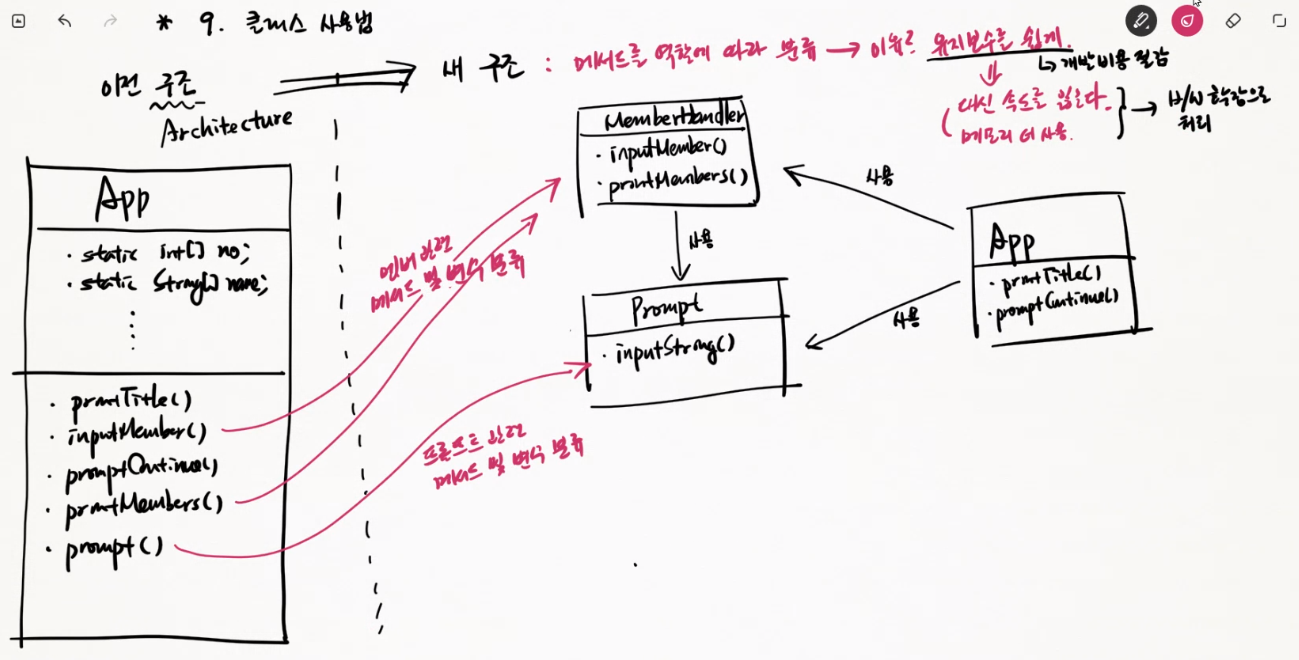 * 9. 클래스 사용법
이전 구조
Architecture
새 구조 : 메서드를 역할에 따라 분류 → 이유? 유지보수를 쉽게.
↳ 개발비용 절감
대신 속도를 잃는다.
메모리 더 사용.
→ H/W 확장으로
처리
App
· static int[] no;
· static String[] name;
· printTitle()
· inputMember()
· promptContinue()
· printMembers()
· prompt()
멤버 관련
메서드 및 변수 분류
프롬프트 관련
메서드 및 변수 분류
MemberHandler
· inputMember()
· printMembers()
사용
Prompt
· inputString()
사용
사용
App
· printTitle()
· promptContinue()